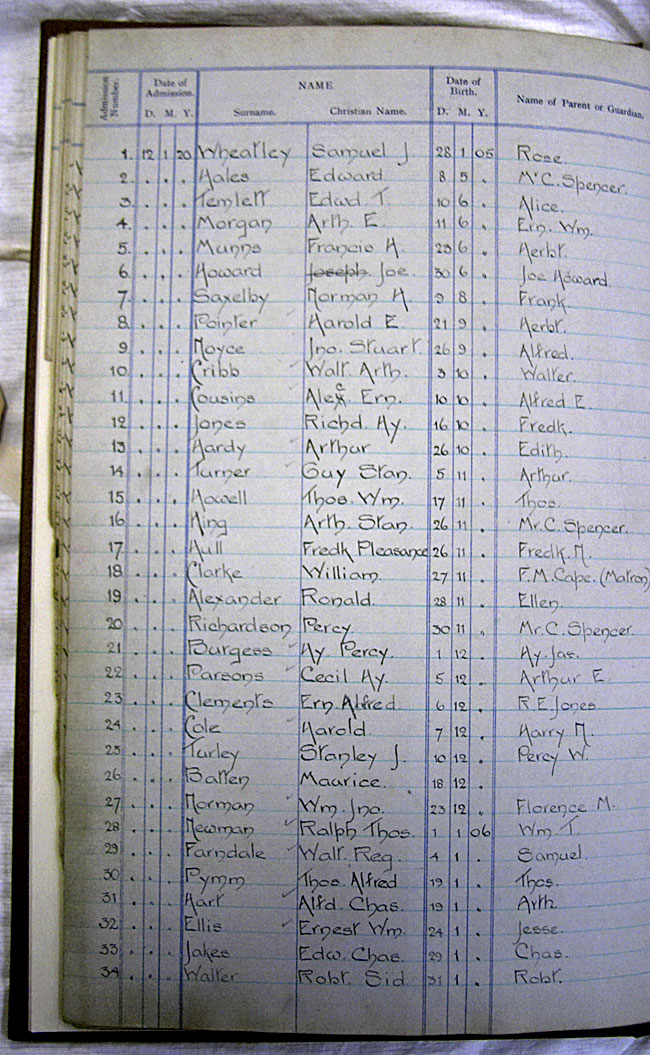 Admission Number. Date of Admission. NAME Date of Birth. Name of Parent or Guardian.
D. M. Y. Surname. Christian Name. D. M. Y.
1. 12 1 20 Wheatley Samuel J 28 1 05 Rose
2. . . . Hales Edward 8 5 . Mr C. Spencer.
3. . . . Temlett Edwd T. 10 6 . Alice.
4. . . . Morgan Arth. E. 11 6 . Ern. Wm.
5. . . . Munns Francis H 23 6 . Herbt.
6. . . . Howard Joseph Joe. 30 6 . Joe Howard
7. . . . Saxelby Norman H. 9 8 . Frank
8. . . . Pointer Harold E 21 9 . Herbt.
9 . . . Noyce Jno. Stuart. 26 9 . Alfred.
10. . . . Cribb Walt. Arth. 3 10 . Walter.
11. . . . Cousins Alec. Ern. 10 10 . Alfred E.
12 . . . Jones Richd. Hy. 16 10 . Fredk.
13 . . . Hardy Arthur 26 10 . Edith.
14 . . . Turner Guy Stan. 5 11 . Arthur.
15 . . . Howell Thos. Wm. 17 11 . Thos.
16 . . . King Arth. Stan. 26 11 . Mr. C. Spencer.
17. . . . Hull Fredk Pleasance 26 11 . Fredk. N.
18 . . . Clarke William. 27 11 . F. M. Cape. (Matron)
19 . . . Alexander Ronald. 28 11 . Ellen.
20 . . . Richardson Percy 30 11 . Mr. C. Spencer.
21 . . . Burgess Hy Percy. 1 12 . Hy. Jas.
22 . . . Parsons Cecil Hy. 5 12 . Arthur E.
23 . . . Clements Ern. Alfred 6 12 . R. E. Jones
24 . . . Cole Harold. 7 12 . Harry N.
25 . . . Turley Stanley J. 10 12 . Percy W.
26 . . . Batten Maurice. 18 12 .
27 . . . Norman Wm. Jno. 23 12 . Florence M.
28 . . . Newman Ralph Thos. 1 1 06 Wm. T.
29 . . . Farndale Walt. Reg. 4 1 . Samuel.
30 . . . Pymm Thos. Alfred 19 1 . Thos.
31 . . . Hart Alfd. Chas. 19 1 . Arth.
32 . . . Ellis Ernest Wm. 24 1 . Jesse.
33 . . . Jakes Edw. Chas. 29 1 . Chas.
34 . . . Walter Robt. Sid. 31 1 . Robt.